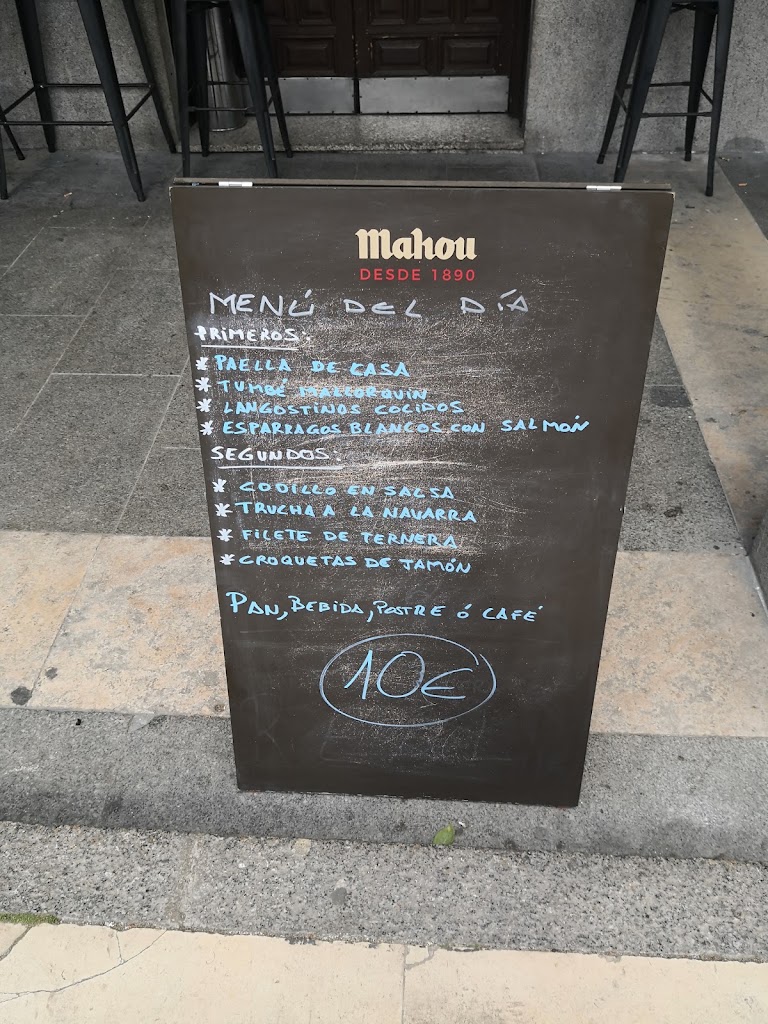 Mahou
DESDE 1890
MENÚ DEL DÍA
PRIMEROS:
* PAELLA DE CASA
* TUMBÉ MALLORQUIN
* LANGOSTINOS COCIDOS
* ESPARRAGOS BLANCOS CON SALMÓN
SEGUNDOS:
* CODILLO EN SALSA
* TRUCHA A LA NAVARRA
* FILETE DE TERNERA
* CROQUETAS DE JAMÓN
PAN, BEBIDA, POSTRE Ó CAFÉ
10€